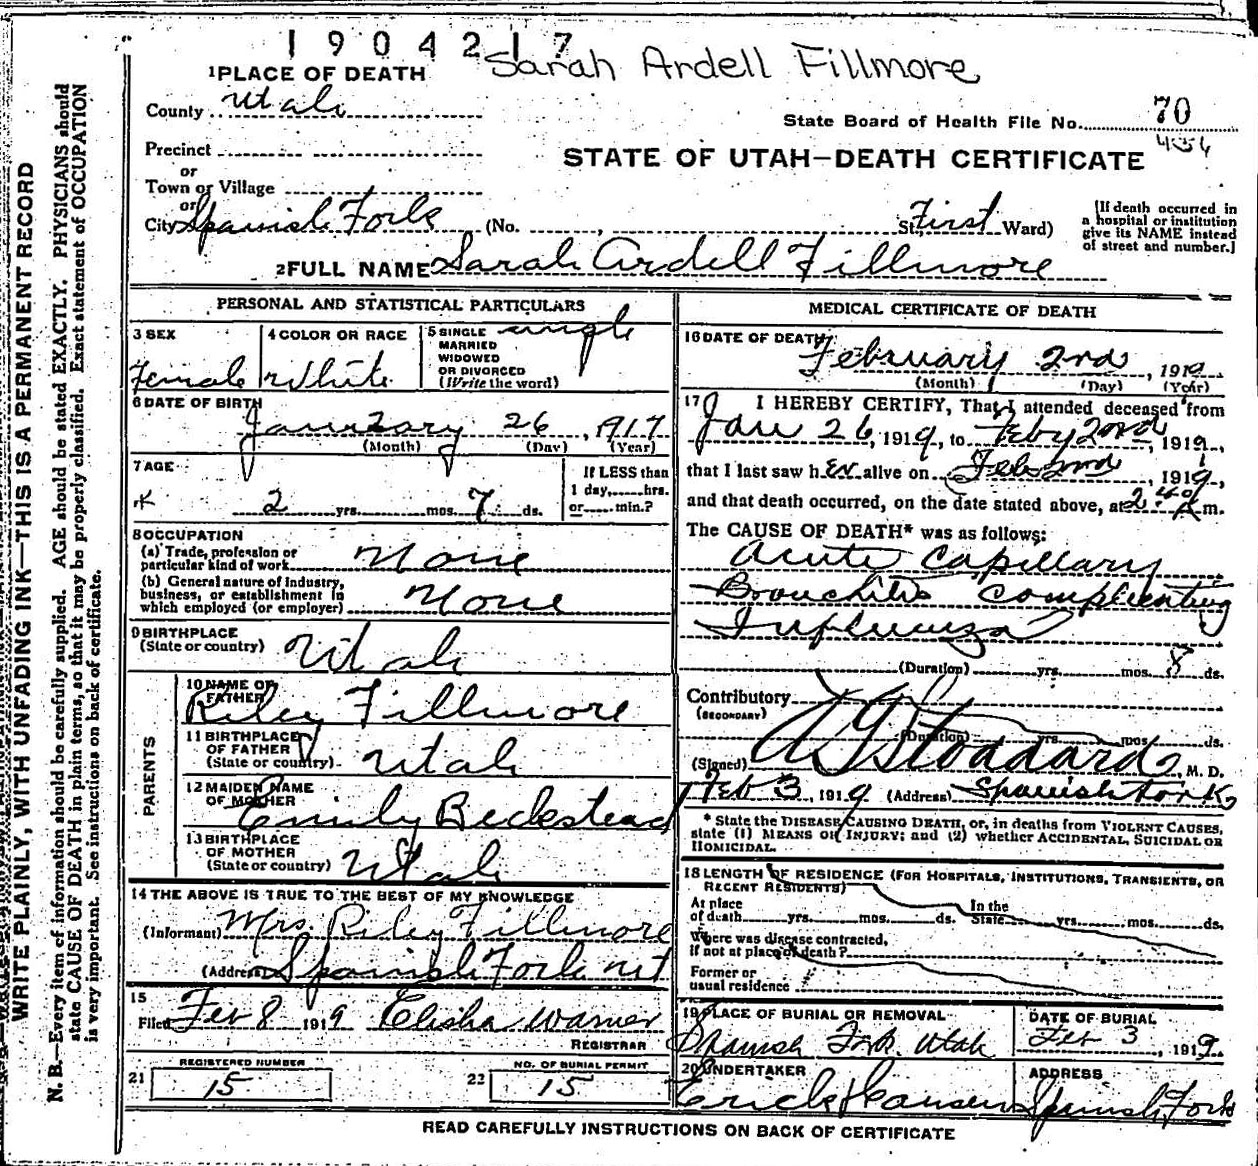 1904217
Sarah Ardell Fillmore
1 PLACE OF DEATH
County Utah
State Board of Health File No. 70
454
Precinct
or
Town or Village
STATE OF UTAH—DEATH CERTIFICATE
or
City Spanish Fork (No. , St. First Ward)
[If death occurred in a hospital or institution give its NAME instead of street and number.]
2 FULL NAME Sarah Ardell Fillmore
PERSONAL AND STATISTICAL PARTICULARS
3 SEX
Female
4 COLOR OR RACE
White
5 SINGLE single
MARRIED
WIDOWED
OR DIVORCED
(Write the word)
6 DATE OF BIRTH
January 26, 1917
(Month) (Day) (Year)
7 AGE
2 yrs. mos. 7 ds.
If LESS than
1 day,......hrs.
or......min.?
8 OCCUPATION
(a) Trade, profession or
particular kind of work None
(b) General nature of industry,
business, or establishment in
which employed (or employer) None
9 BIRTHPLACE
(State or country) Utah
PARENTS
10 NAME OF
FATHER
Riley Fillmore
11 BIRTHPLACE
OF FATHER
(State or country) Utah
12 MAIDEN NAME
OF MOTHER
Emily Beckstead
13 BIRTHPLACE
OF MOTHER
(State or country) Utah
14 THE ABOVE IS TRUE TO THE BEST OF MY KNOWLEDGE
(Informant) Mrs. Riley Fillmore
(Address) Spanish Fork Ut
15
Filed Feb 8 1919 Elisha Warner
REGISTRAR
REGISTERED NUMBER
21 15
NO. OF BURIAL PERMIT
22 15
MEDICAL CERTIFICATE OF DEATH
16 DATE OF DEATH
February 2nd, 1919
(Month) (Day) (Year)
17 I HEREBY CERTIFY, That I attended deceased from
Jan 26, 1919, to Feby 2nd, 1919,
that I last saw her alive on Feb 2nd, 1919,
and that death occurred, on the date stated above, at 2:40 A m.
The CAUSE OF DEATH* was as follows:
Acute Capillary
Bronchitis complicating
Influenza
(Duration) yrs. mos. 8 ds.
Contributory
(SECONDARY)
(Duration) yrs. mos. ds.
(Signed) Stoddard, M. D.
Feb 3, 1919 (Address) Spanish Fork
* State the DISEASE CAUSING DEATH, or, in deaths from VIOLENT CAUSES,
state (1) MEANS OF INJURY; and (2) whether ACCIDENTAL, SUICIDAL OR
HOMICIDAL.
18 LENGTH OF RESIDENCE (FOR HOSPITALS, INSTITUTIONS, TRANSIENTS, OR
RECENT RESIDENTS)
At place
of death......yrs......mos......ds.
In the
State......yrs......mos......ds.
Where was disease contracted,
if not at place of death?
Former or
usual residence
19 PLACE OF BURIAL OR REMOVAL
Spanish Fork Utah
DATE OF BURIAL
Feb 3, 1919
20 UNDERTAKER
Erick Hansen
ADDRESS
Spanish Fork
READ CAREFULLY INSTRUCTIONS ON BACK OF CERTIFICATE
WRITE PLAINLY, WITH UNFADING INK—THIS IS A PERMANENT RECORD
N. B.—Every item of information should be carefully supplied. AGE should be stated EXACTLY. PHYSICIANS should
state CAUSE OF DEATH in plain terms, so that it may be properly classified. Exact statement of OCCUPATION
is very important. See instructions on back of certificate.